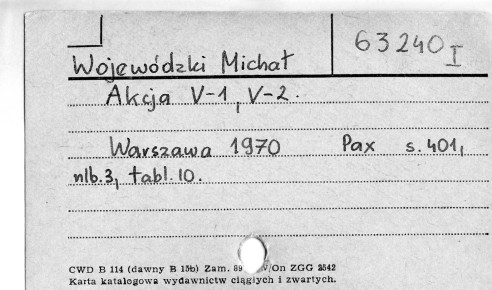 63240 I
Wojewódzki Michał
Akcja V-1, V-2.
Warszawa 1970 Pax s. 401,
nlb. 3, tabl. 10.
CWD B 114 (dawny B 15b) Zam. 89 V/On ZGG 3542
Karta katalogowa wydawnictw ciągłych i zwartych.